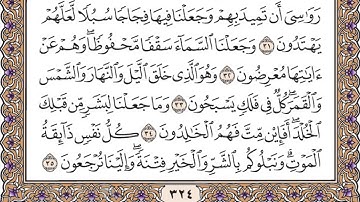 رَوَٰسِىَ أَن تَمِيدَ بِهِمْ وَجَعَلْنَا فِيهَا فِجَاجًا سُبُلًا لَّعَلَّهُمْ
يَهْتَدُونَ ٣١ وَجَعَلْنَا ٱلسَّمَآءَ سَقْفًا مَّحْفُوظًا ۖ وَهُمْ عَنْ
ءَايَٰتِهَا مُعْرِضُونَ ٣٢ وَهُوَ ٱلَّذِى خَلَقَ ٱلَّيْلَ وَٱلنَّهَارَ وَٱلشَّمْسَ
وَٱلْقَمَرَ ۖ كُلٌّ فِى فَلَكٍ يَسْبَحُونَ ٣٣ وَمَا جَعَلْنَا لِبَشَرٍ مِّن قَبْلِكَ
ٱلْخُلْدَ ۖ أَفَإِي۟ن مِّتَّ فَهُمُ ٱلْخَٰلِدُونَ ٣٤ كُلُّ نَفْسٍ ذَآئِقَةُ
ٱلْمَوْتِ ۗ وَنَبْلُوكُم بِٱلشَّرِّ وَٱلْخَيْرِ فِتْنَةً ۖ وَإِلَيْنَا تُرْجَعُونَ ٣٥
٣٢٤